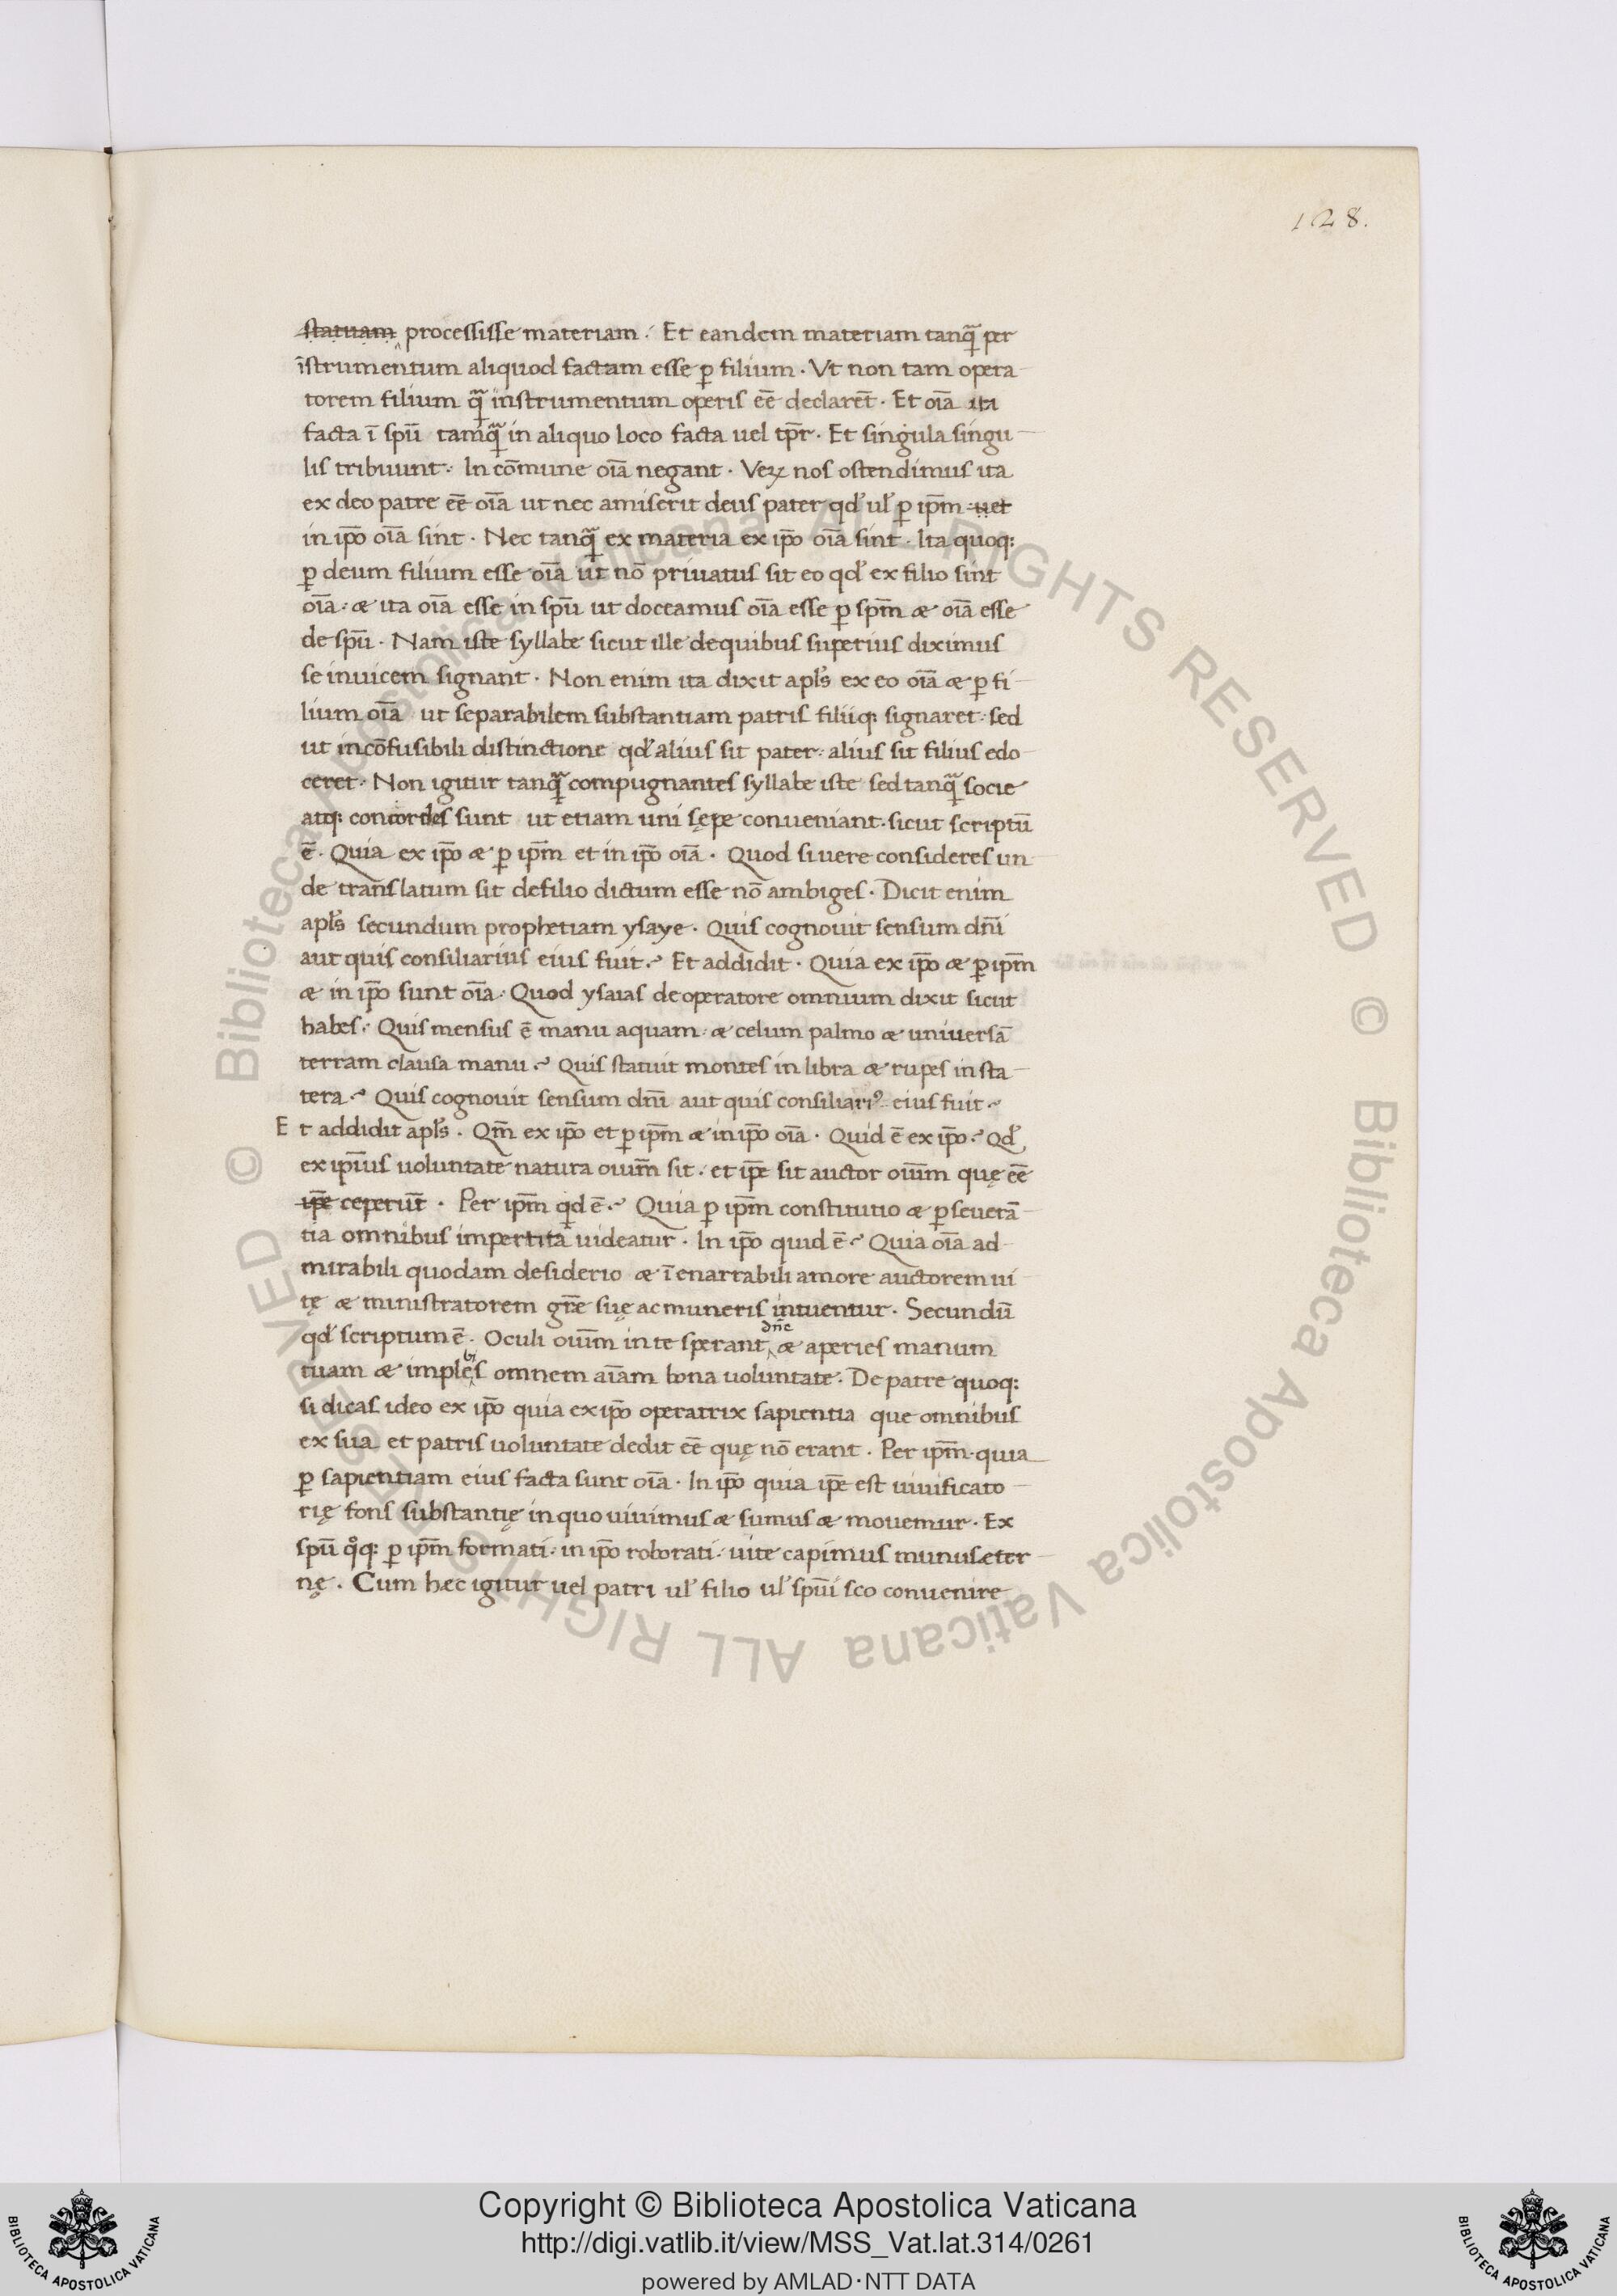 128.
statuam processisse materiam. Et eandem materiam tanq̃ per
īstrumentum aliquod factam esse ꝑ filium. Vt non tam opera
torem filium q̃ instrumentum operis eē declaret̄. Et oīa ita
facta ī spū tamq̃ in aliquo loco facta uel tp̄r. Et singula singu
lis tribuunt. In cōmune oīa negant. Veꝝ nos ostendimus ita
ex deo patre eē oīa ut nec amiserit deus pater qd' ul' ꝑ ip̄m uel
in ip̄o oīa sint. Nec tanq̃ ex materia ex ip̄o oīa sint. Ita quoq:
ꝑ deum filium esse oīa ut nō priuatus sit eo qd' ex filio sint
oīa: æ ita oīa esse in spū ut doceamus oīa esse ꝑ sp̄m æ oīa esse
de spū. Nam iste syllabe sicut ille dequibus superius diximus
se inuicem signant. Non enim ita dixit apl's ex eo oīa æ ꝑ fi
lium oīa ut separabilem substantiam patris filiiq: signaret: sed
ut incōfusibili distinctione qd' alius sit pater: alius sit filius edo
ceret. Non igitur tanq̃ compugnantes syllabe iste sed tanq̃ socie
atq: concordes sunt ut etiam uni sępe conueniant. sicut scriptū
ē. Quia ex ip̄o æ ꝑ ip̄m et in ip̄o oīa. Quod si uere consideres un
de translatum sit defilio dictum esse nō ambiges. Dicit enim
apl's secundum prophetiam ysaye. Quis cognouit sensum dn̄i
aut quis consiliarius eius fuit? Et addidit. Quia ex ip̄o æ ꝑ ip̄m
æ in ip̄o sunt oīa. Quod ysaias de operatore omnium dixit sicut
habes. Quis mensus ē manu aquam: æ celum palmo æ uniuersā
terram clausa manu? Quis statuit montes in libra æ rupes in sta
tera? Quis cognouit sensum dn̄i aut quis consiliariꝰ eius fuit?
Et addidit apl's. Qm̄ ex ip̄o et ꝑ ip̄m æ in ip̄o oīa. Quid ē ex ip̄o? Qd'
ex ip̄ius uoluntate natura oiūm sit: et ip̄e sit auctor oiūm quę eē
ip̄e ceperūt. Per ip̄m qd ē? Quia ꝑ ip̄m constitutio æ ꝑseuerā
tia omnibus impertita uideatur. In ip̄o quid ē? Quia oīa ad
mirabili quodam desiderio æ īenarrabili amore auctorem ui
tę æ ministratorem gr̄e suę ac muneris intuentur. Secundū
qd' scriptum ē. Oculi oiūm in te sperant dn̄e æ aperies manum
tuam æ implebis omnem aīam bona uoluntate. De patre quoq:
si dicas ideo ex ip̄o quia ex ip̄o operatrix sapientia que omnibus
ex sua et patris uoluntate dedit eē quę nō erant. Per ip̄m. quia
ꝑ sapientiam eius facta sunt oīa. In ip̄o quia ip̄e est uiuificato
rię fons substantię in quo uiuimus æ sumus æ mouemur. Ex
spū qͦq: ꝑ ip̄m formati: in ip̄o roborati: uite capimus munus æter
nę. Cum hæc igitur uel patri ul' filio ul' spūi sco conuenire
© Biblioteca Apostolica Vaticana ALL RIGHTS RESERVED © Biblioteca Apostolica Vaticana ALL RIGHTS RESERVED
Copyright © Biblioteca Apostolica Vaticana
http://digi.vatlib.it/view/MSS_Vat.lat.314/0261
powered by AMLAD·NTT DATA
BIBLIOTECA APOSTOLICA VATICANA
BIBLIOTECA APOSTOLICA VATICANA